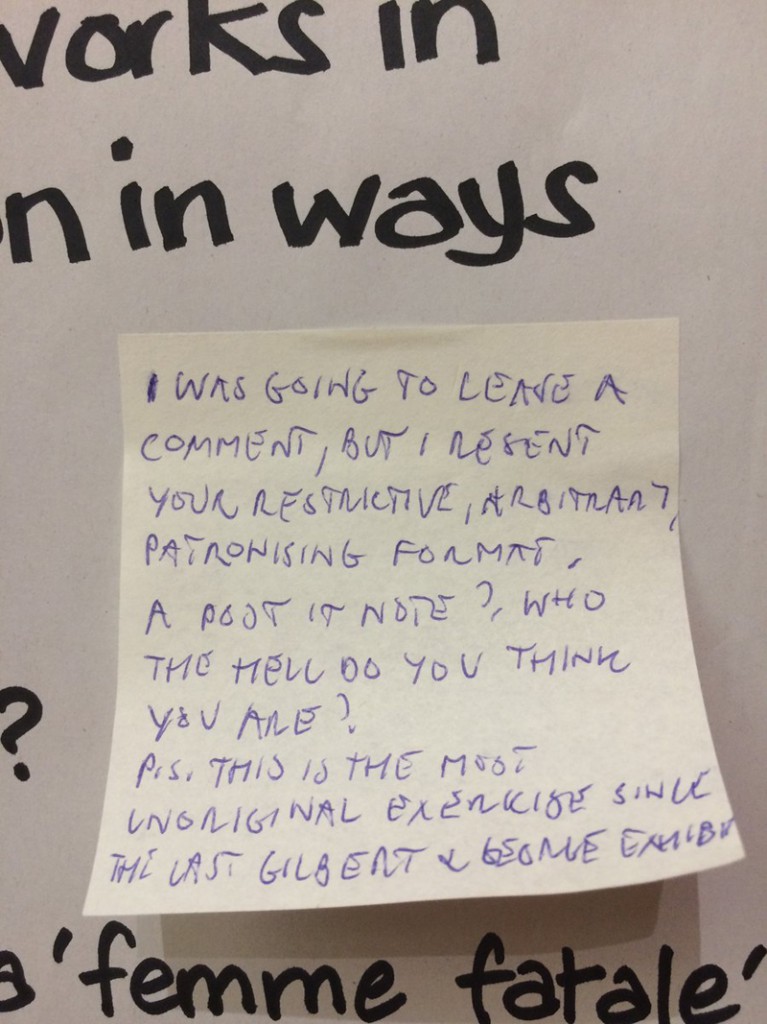 works in
on in ways
I WAS GOING TO LEAVE A
COMMENT, BUT I RESENT
YOUR RESTRICTIVE, ARBITRARY,
PATRONISING FORMAT.
A POST IT NOTE?, WHO
THE HELL DO YOU THINK
YOU ARE?
?
P.S. THIS IS THE MOST
UNORIGINAL EXERCISE SINCE
THE LAST GILBERT & GEORGE EXHIBIT
a 'femme fatale'